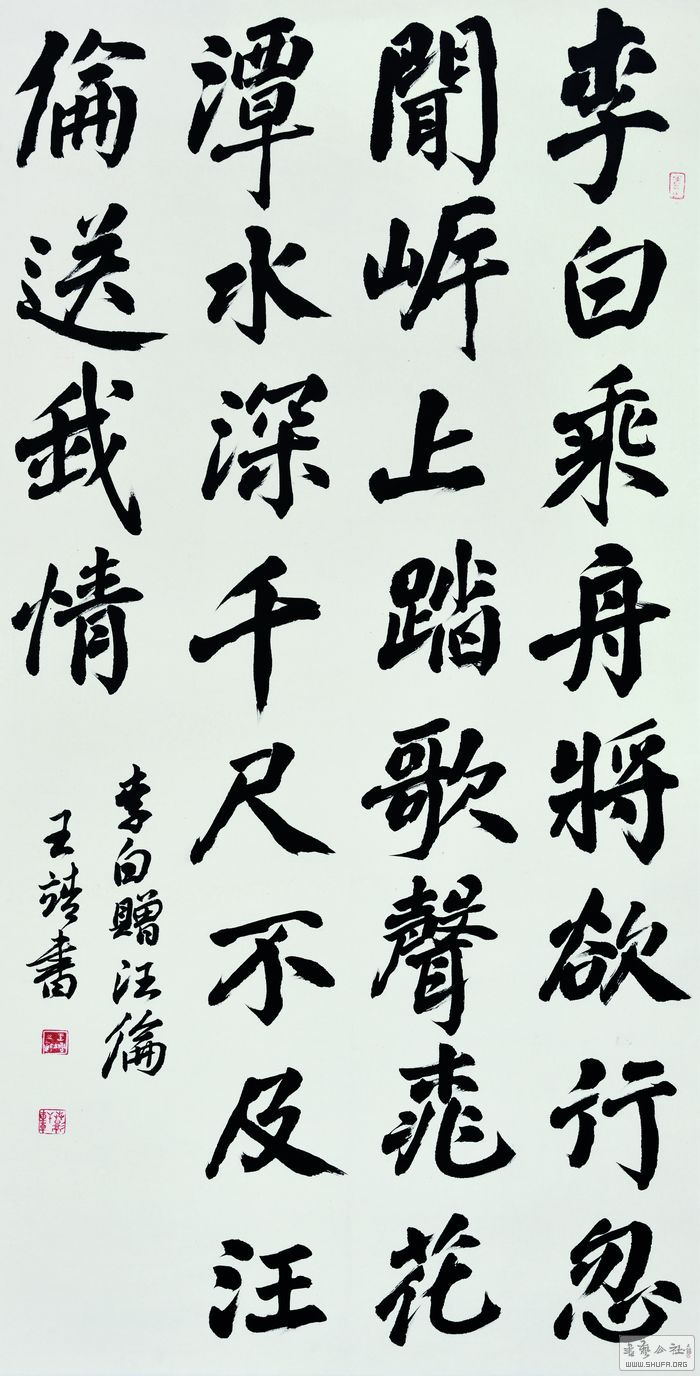 李白乘舟將欲行忽
聞岸上踏歌聲桃花
潭水深千尺不及汪
倫送我情
李白贈汪倫
王靖書
書藝公社
WWW.SHUFA.ORG